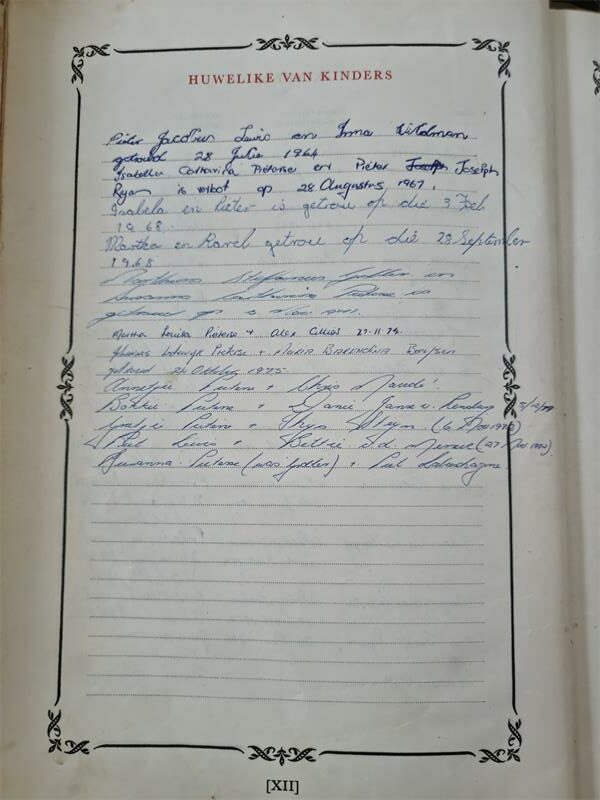 HUWELIKE VAN KINDERS
Pieter Jacobus Lewis en Irma Wildman
getroud 28 Julie 1964
Isabella Catharina Pieterse en Pieter Joseph
Ryan is verloof op 28 Augustus 1967.
Isabela en Pieter is getrou op die 3 Feb
1968.
Martha en Karel getrou op die 28 September
1968
Stefanus en
Susanna Catharina Pieterse is
getroud op Nov.
Martha Louisa Pieterse + Alex Cilliers 27.11.74.
Lodewyk Pieterse + MARIA BARENDINA
getroud 24 Oktober 1975
Annetjie Pieterse + Chris Naudé.
Bokkie Pieterse + Danie Janse v. Rensburg
Grietjie Pieterse + Thys Steyn (6
Piet Lewis + Bettie v.d. Merwe (27 Nov
Susanna Pieterse (was + Piet Labuschagne.
[XII]